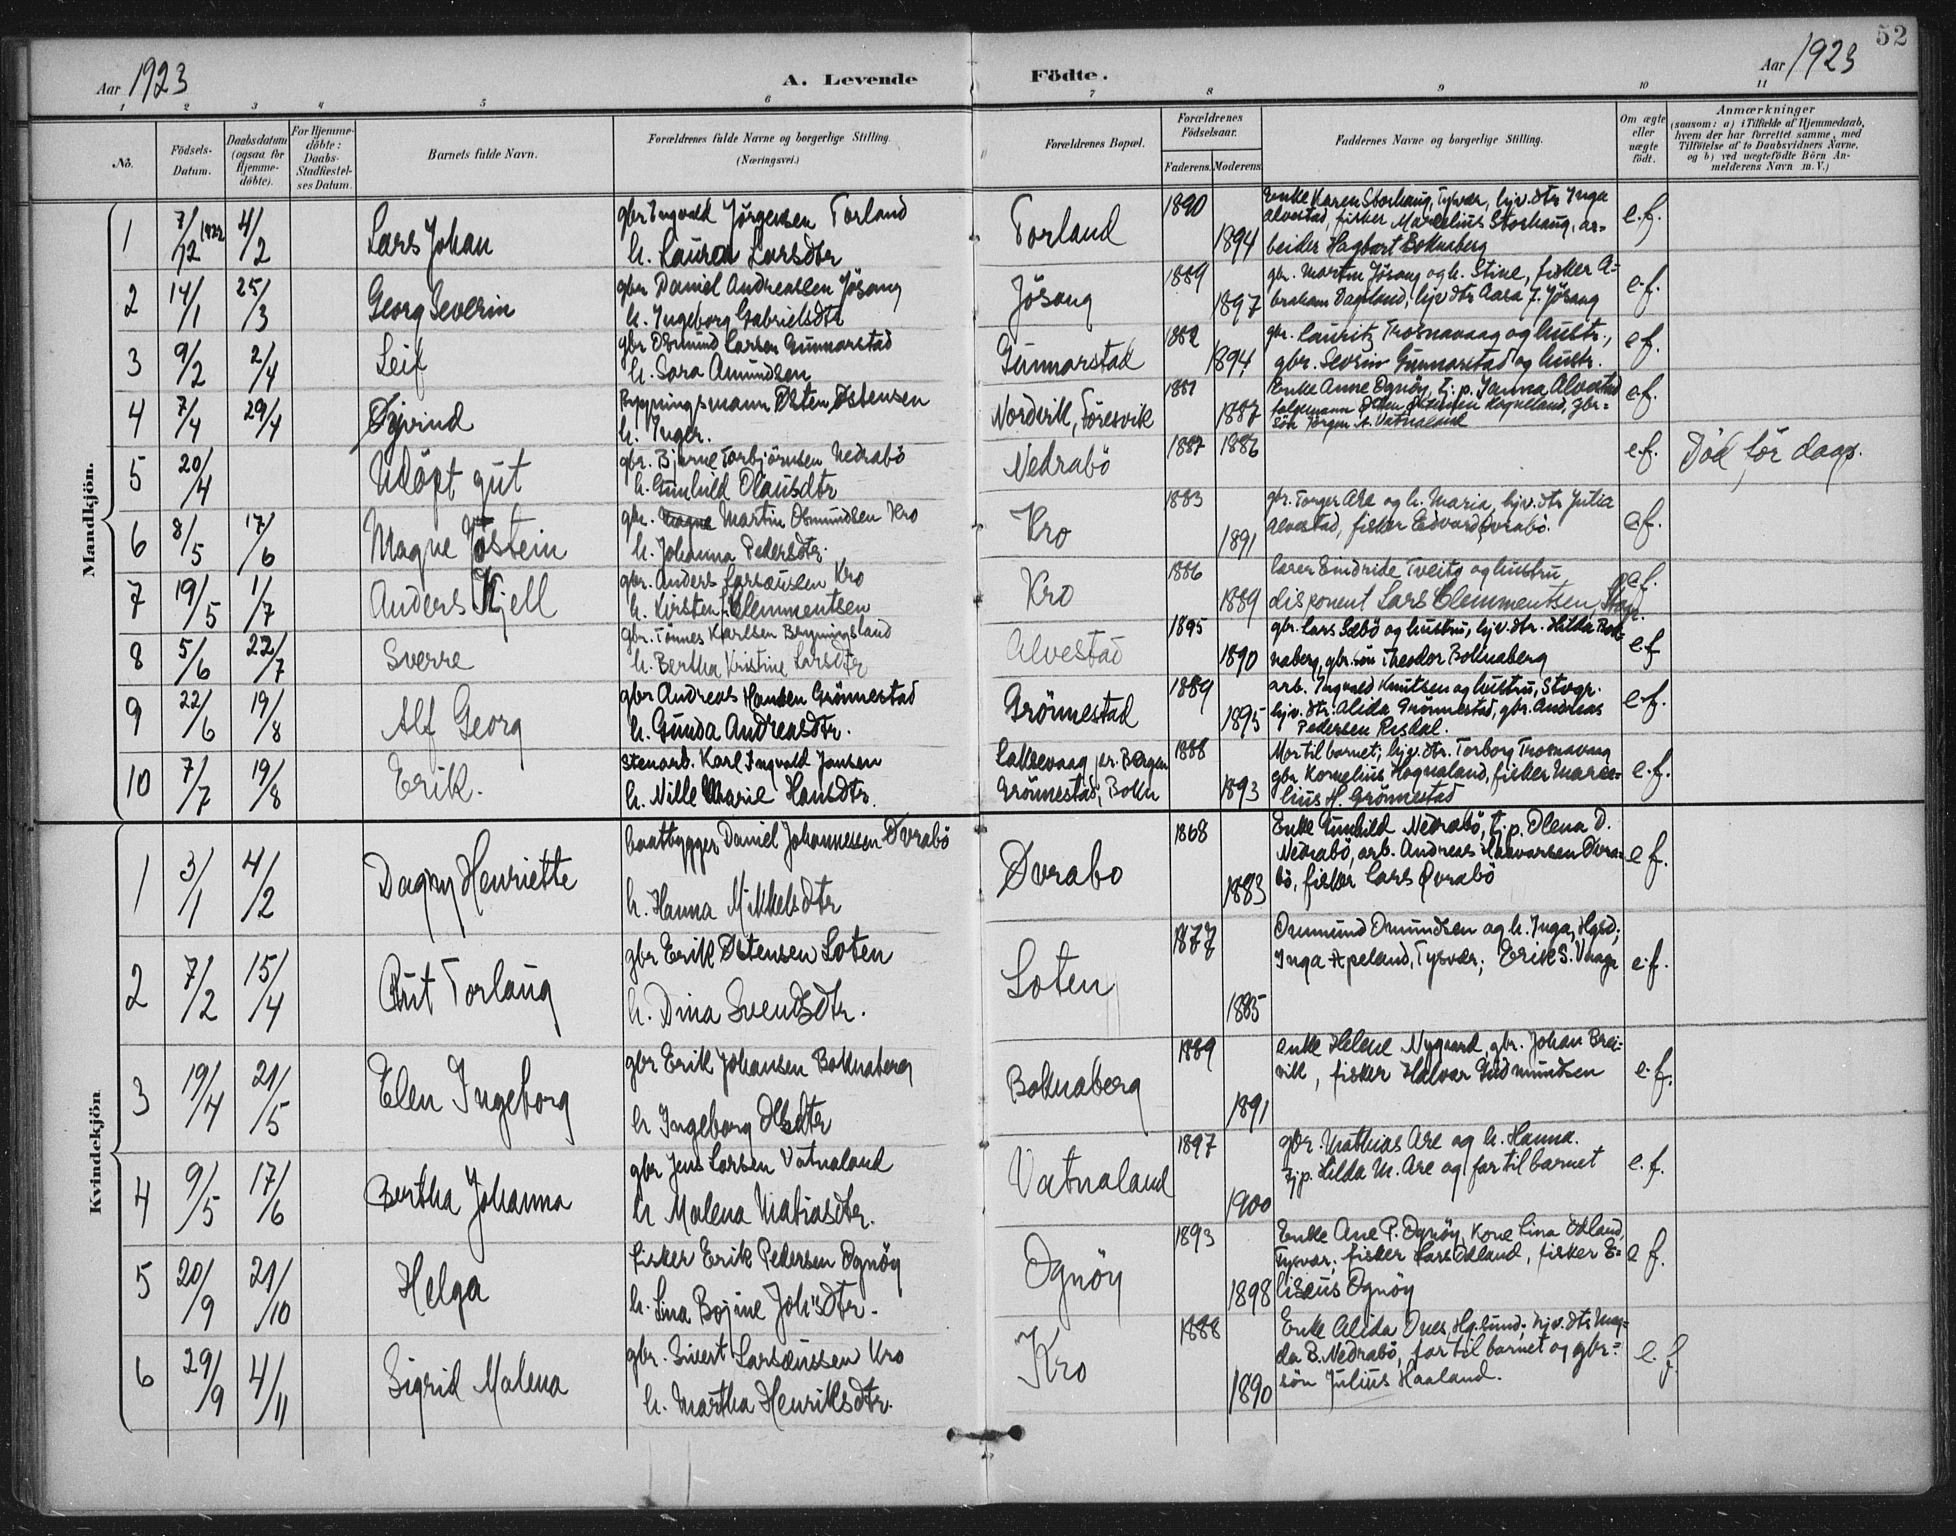 52
Aar 1923
A. Levende Födte.
Aar 1923
1 2 3 4 5 6 7 8 9 10 11
No.
Födsels-Datum.
Daabsdatum (ogsaa for Hjemme-döbte).
For Hjemme-döbte: Daabs-Stadfæstel-ses Datum.
Barnets fulde Navn.
Forældrenes fulde Navne og borgerlige Stilling.
(Næringsvei.)
Forældrenes Bopæl.
Forældrenes Födselsaar.
Faderens. Moderens.
Faddernes Navne og borgerlige Stilling.
Om ægte eller uægte födt.
Anmærkninger
(saasom: a) i Tilfælde af Hjemmedaab,
hvem der har forrettet samme, med
Tilföielse af to Daabsvidners Navne.
og b) ved uægtefödte Börn An-
melderens Navn m. V.)
Mandkjön.
1 7/12 1922 4/2 Lars Johan
gbr Ingvald Jörgensen Torland
h. Laura Larsdtr
Torland 1890 1894
Enke Karen Storhaug, Tysvær, hjv. dtr Inga
Alvestad, fisker Marselius Storhaug, ar-
beider Hagbart Boknaberg
e.f.
2 14/1 25/3 Georg Severin
gbr Daniel Andreassen Jösang
h. Ingeborg Gabrielsdtr
Jösang 1889 1897
gbr. Martin Jösang og h. Stine, fisker A=
braham Dagsland, hjv dtr Aasa J. Jösang
e.f.
3 9/2 2/4 Leif
gbr Osmund Larsen Gunnarstad
h. Sara Amundsen
Gunnarstad 1882 1894
gbr. Lauritz Trosnavaag og hustr.,
gbr. Sevrin Gunnarstad og hustr.
e.f.
4 7/4 29/4 Øjvind
Rygningsmann Østen Østensen
h. Inger.
Nordvik, Föresvik 1881 1887
Enke Anne Ognöy, tj. p. Janna Alvestad
Østen Østensen Hognaland, gbr=
sön Jörgen A. Vatnaland
e.f.
5 20/4 Udöpt gut
gbr. Bjarne Torbjörnsen Nedrabö
h. Gunhild Olausdtr
Nedrabö 1887 1886
e.f. Död för daap.
6 8/5 17/6 Magne Östein
gbr. Magne Martin Osmundsen Kro
h. Johanna Pedersdtr.
Kro 1883 1891
gbr. Torger Are og h. Maria, hjv. dtr Julia
Alvestad, fisker Edvard Övrabö.
e.f.
7 19/5 1/7 Anders Kjell
gbr. Anders Larsæussen Kro
h. Kirsten Clemmentsen
Kro 1886 1889
lærer Eindride Tveito og hustru,
disponent Lars Clemmentsen, Stvgr.
e.f.
8 5/6 22/7 Sverre
gbr. Tönnes Karlsen Brynningsland
h. Bertha Kristine Larsdtr
Alvestad 1895 1890
gbr. Lars Sæbö og hustru, hjv. dtr. Hilda Bok-
naberg, gbr. sön Theodor Boknaberg
e.f
9 22/6 19/8 Alf Georg
gbr Andreas Hansen Grönnestad
h. Gunda Andreasdtr.
Grönnestad 1889 1895
arb. Ingvald Knutsen og hustru, Stvgr.
hjv. dtr. Alida Grönnestad, gbr. Andreas
Pedersen Risdal.
e.f.
10 7/7 19/8 Erik.
Stenarb. Karl Ingvald Jansen
h. Nille Marie Hansdtr.
Laksevaag pr. Bergen
Grönnestad, Bokn 1888 1893
Mor til barnet; hjv. dtr. Torborg Trosnavaag
gbr Kornelius Hognaland, fisker Marse-
lius H. Grönnestad
e.f.
Kvindekjön
1 3/1 4/2 Dagny Henriette
baatbygger Daniel Johannessen Övrabö
h. Hanna Mikkelsdtr
Övrabo 1868 1883
Enke Gunhild Nedrabö, tj. p. Olena D.
Nedrabö, arb. Andreas Haavarsen Övra-
bö, fisker Lars Övrabö
e f.
2 7/2 15/4 Rut Torlaug
gbr Erik Østensen Loten
h. Dina Svendsdtr.
Loten 1877 1885
Ommund Ommundsen og h. Inga, Hgsd;
Inga Apeland, Tysvær; Erik S. Vaage
e.f.
3 19/4 21/5 Elen Ingeborg
gbr Erik Johansen Boknaberg
h Ingeborg Olsdtr
Boknaberg 1889 1891
enke Helene Nygaard, gbr. Johan Brei-
vik, fisker Halvar Gudmundsen
e.f.
4 9/5 17/6 Bertha Johanna
gbr Jens Larsen Vatnaland
h Malena Matiasdtr.
Vatnaland 1897 1900
gbr. Mathias Are og h. Hanna.
tjp. Hilda M. Are og far til barnet
e.f.
5 20/9 21/10 Helga
fisker Erik Pedersen Ognöy
h. Lina Bojine Joh'sdtr.
Ognöy 1893 1898
Enke Ane P. Ognöy, Kone Lina Edland,
Tysvær; fisker Lars Edland, fisker E=
liseus Ognöy
e f.
6 29/9 4/11 Sigrid Malena
gbr. Sivert Larsæussen Kro
h. Martha Henriksdtr.
Kro 1888 1890
Enke Alida Ones, Hgsund; hjv. dtr Mag=
da B. Nedrabö, far til barnet og gbr=
sön Julius Haaland.
e. f